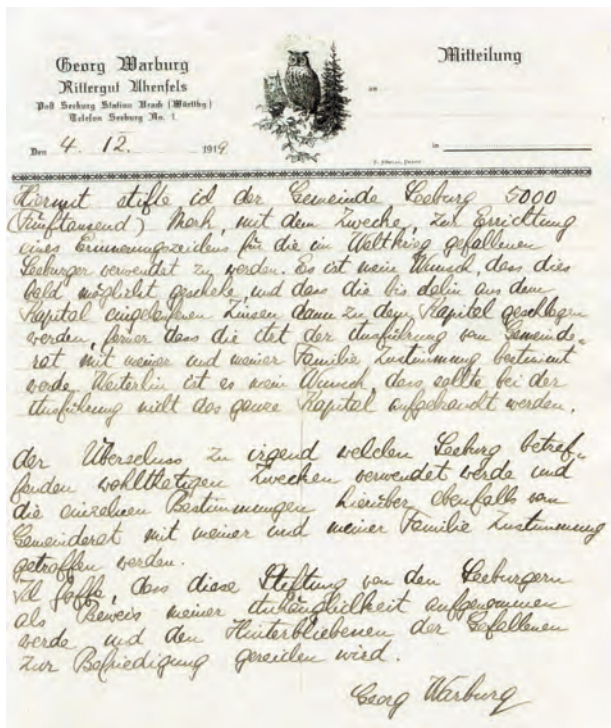 Georg Warburg
Rittergut Uhenfels
Post Seeburg Station Urach (Württbg)
Telefon Seeburg No. 1.
Mitteilung
an
Den 4. 12. 1919
in
Hiermit stifte ich der Gemeinde Seeburg 5000
(Fünftausend) Mark, mit dem Zwecke, zur Errichtung
eines Erinnerungszeichens für die im Weltkrieg gefallenen
Seeburger verwendet zu werden. Es ist mein Wunsch, dass dies
bald möglichst geschehe und dass die bis dahin aus dem
Kapital eingelaufenen Zinsen dann zu dem Kapital geschlagen
werden, ferner dass die Art der Ausführung vom Gemeinde-
rat mit meiner und meiner Familie Zustimmung bestimmt
werde. Weiterhin ist es mein Wunsch, dass sollte bei der
Ausführung nicht das ganze Kapital aufgebraucht werden,
der Überschuss zu irgend welchen Seeburg betref-
fenden wohlthätigen Zwecken verwendet werde und
die einzelnen Bestimmungen hierüber ebenfalls vom
Gemeinderat mit meiner und meiner Familie Zustimmung
getroffen werden.
Ich hoffe, dass diese Stiftung von den Seeburgern
als Beweis meiner Anhänglichkeit aufgenommen
werde und den Hinterbliebenen der Gefallenen
zur Befriedigung gereichen wird.
Georg Warburg